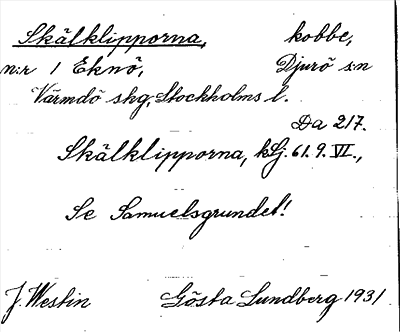 Skälklipporna, kobbe,
n:r 1 Eknö, Djurö s:n
Värmdö skg, Stockholms l.
Da 217.
Skälklipporna, kSj. 61. 9. VI.,
Se Samuelsgrundet!
J. Westin Gösta Lundberg 1931